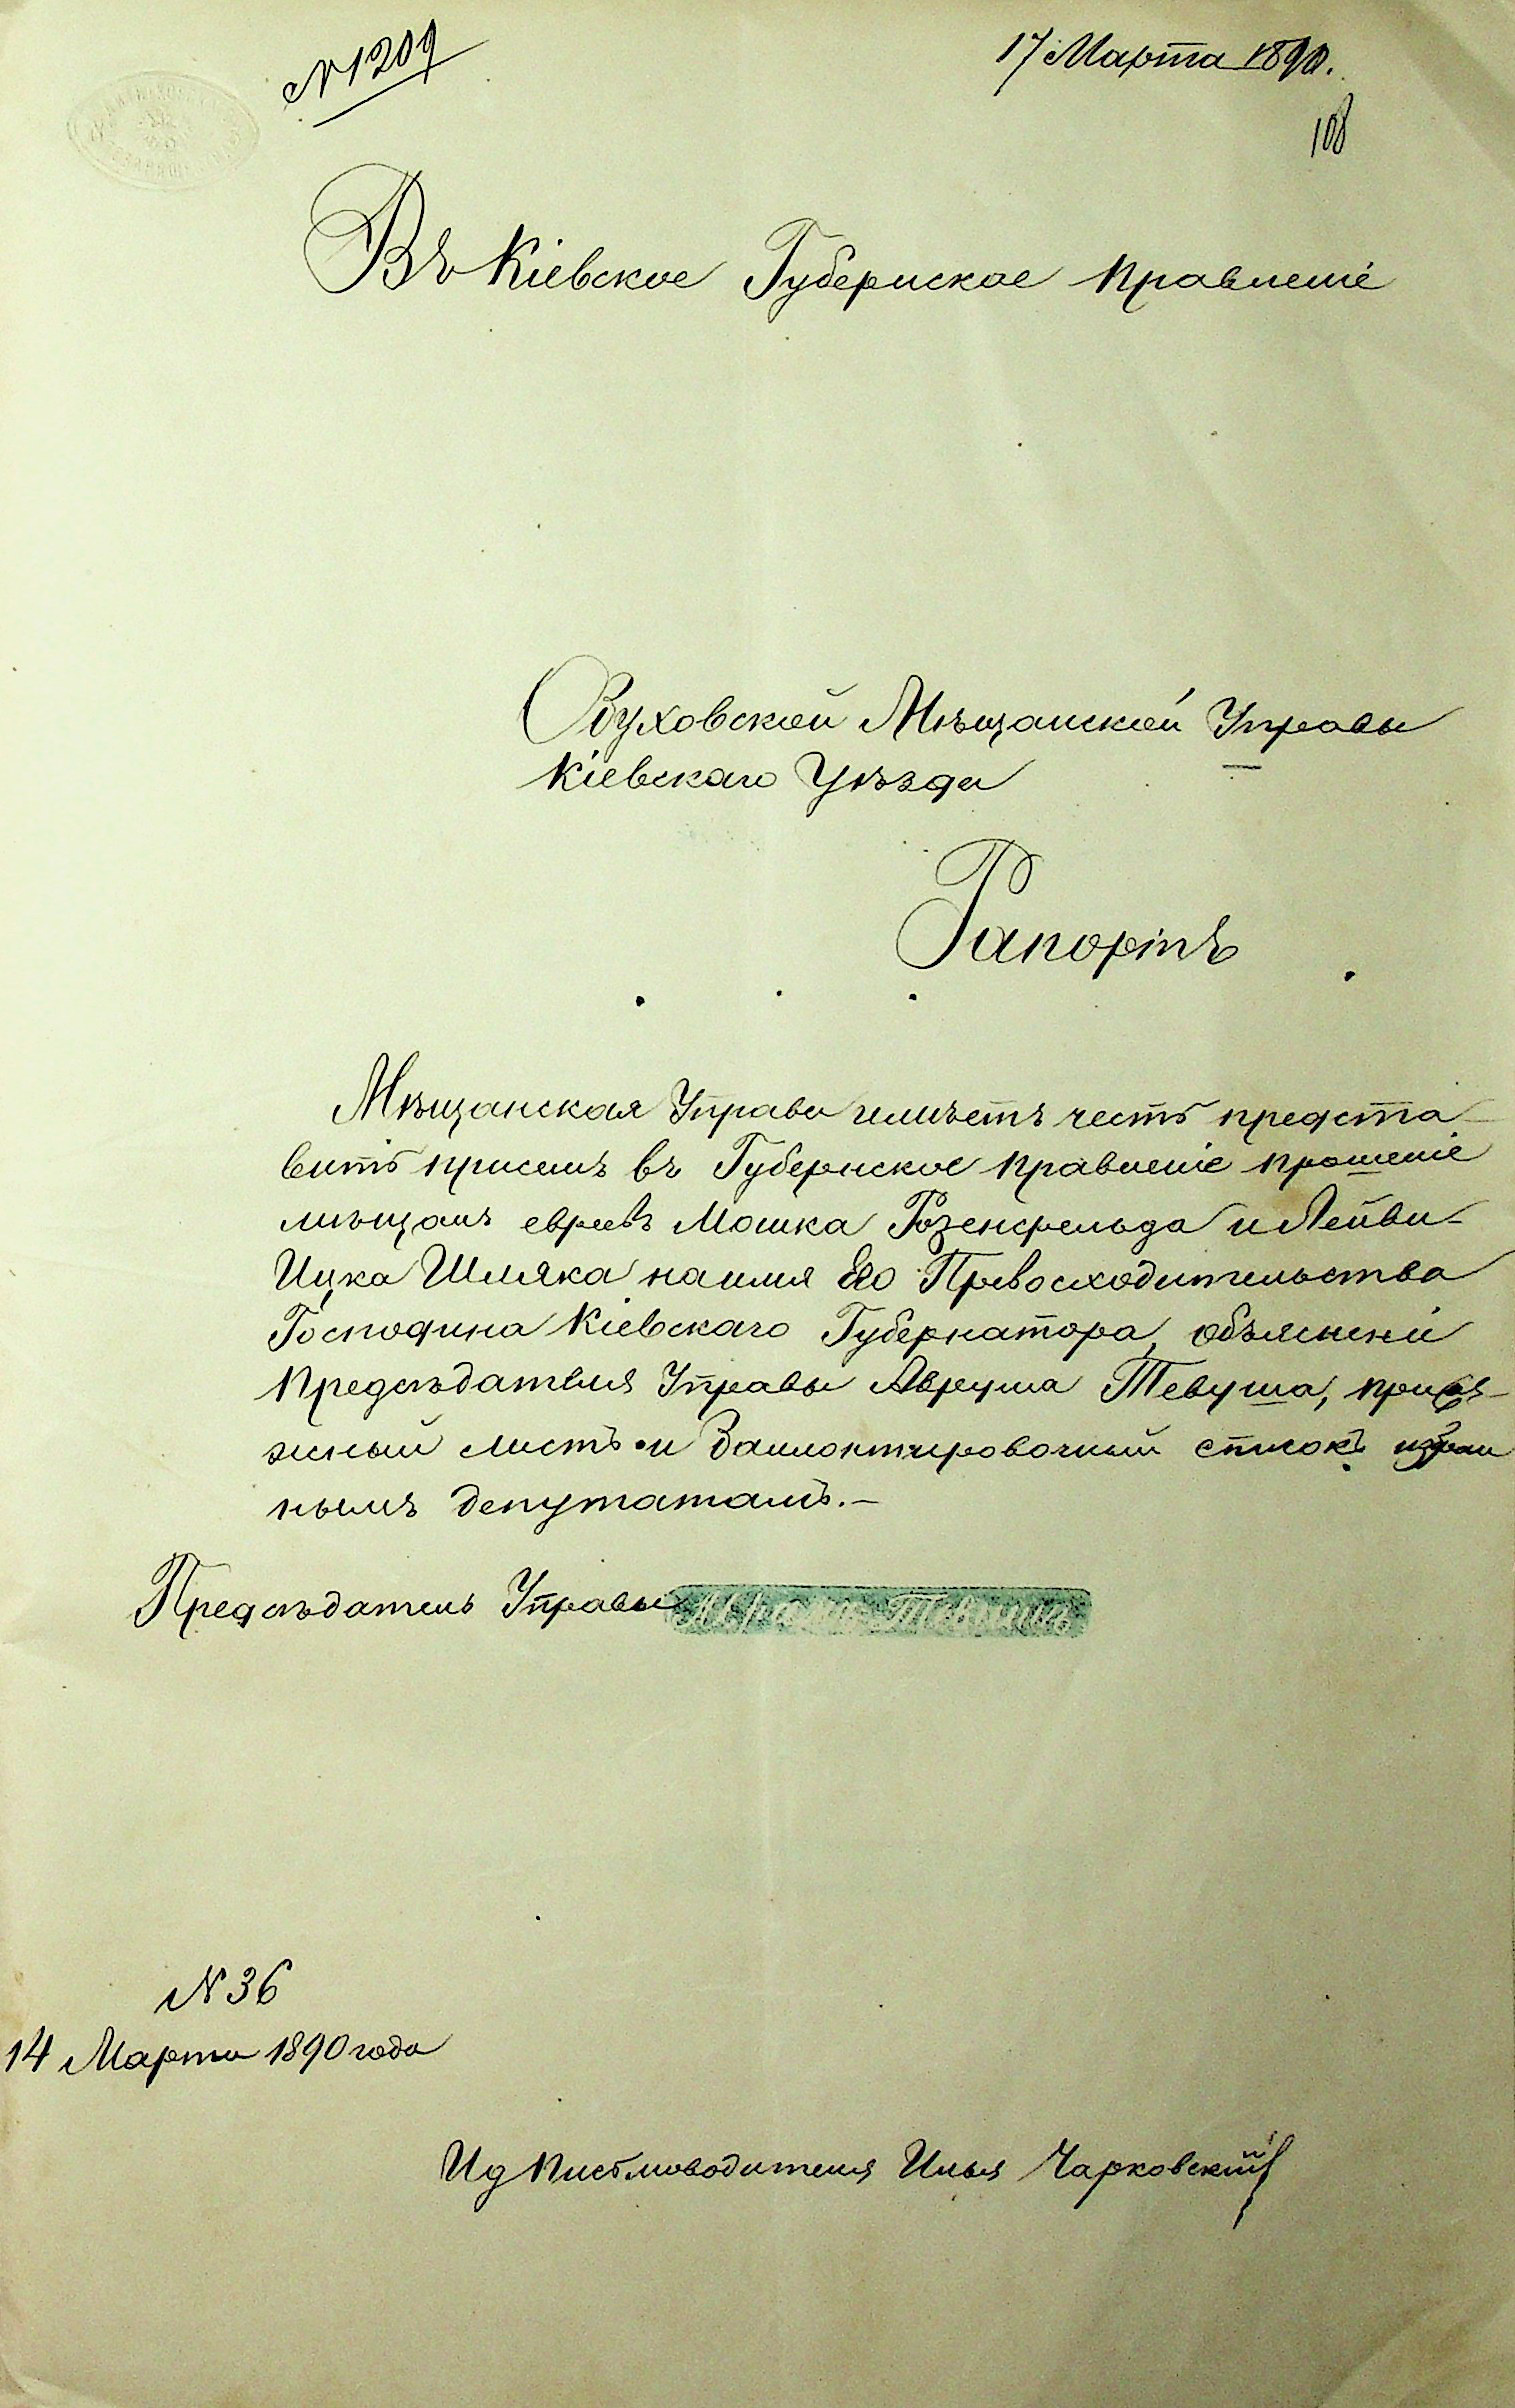 № 1209
17 Марта 1890.
108
Въ Кіевское Губернское Правленіе
Обуховской Мѣщанской Управы
Кіевскаго Уѣзда
Рапортъ
Мѣщанская Управа имѣетъ честь предста-
вить присемъ въ Губернское Правленіе прошеніе
мѣщанъ евреевъ Мошка Розенфельда и Лейви-
Ицка Шляка на имя Его Превосходительства
Господина Кіевскаго Губернатора, объясненіе
Предсѣдателя Управы Аврума Тевуша, прися-
жный листъ и Баллотировочный списокъ избран
нымъ депутатамъ.-
Предсѣдатель Управы
№ 36
14 Марта 1890 года
Ид Письмоводителя Илья Чарковскій